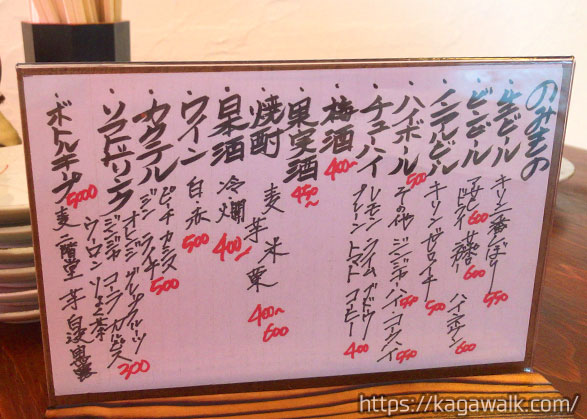 のみもの
・生ビール キリン一番しぼり 550
・ビンビール アサヒドライ 600 ハイネケン 600
・ノンアルビール キリンゼロイチ 500
・ハイボール 500 ジンジャーハイ 550 コークハイ 550
・チューハイ レモン ライム プレーン トマト コーヒー 400
・梅酒 400〜
・果実酒 450〜
・焼酎 麦 芋 米 栗 400〜600
・日本酒 冷 燗 400〜
・ワイン 白 赤 500
・カクテル ピーチ カシス ジン ライチ 500
・ソフトドリンク オレンジ ジンジャー コーラ カルピス ウーロン 300
・ボトルキープ 5000 麦 二階堂 芋
https://kagawalk.com/